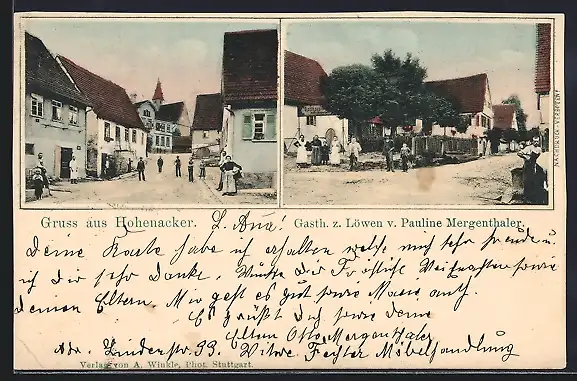 NACHDRUCK VERBOTEN!
Gruss aus Hohenacker. L. Ana!
Gasth. z. Löwen v. Pauline Mergenthaler.
Deine Karte habe ich erhalten welche mich sehr freute u.
ich dir sehr danke. Wünsche dir Fröhliche Weihnachten sowie
deinen Eltern. Mir geht es gut sowie Marie auch.
Es grüßt dich sowie deine
Eltern Otto Mergenthaler
Adr. Lindenstr. 33. Witwe Möbelhandlung
Verlag von A. Winkle, Phot. Stuttgart.